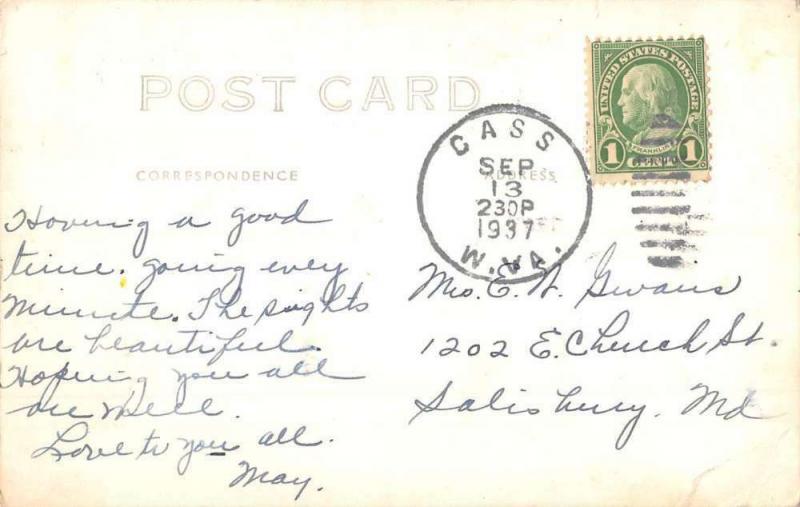 POST CARD
CORRESPONDENCE
ADDRESS
UNITED STATES POSTAGE
FRANKLIN
1 CENT 1
CASS
SEP
13
230P
1937
W. VA.
Having a good
time. going every
minute. The sights
are beautiful.
Hoping you all
are well.
Love to you all.
May.
Mrs. E. W. Gwans
1202 E. Church St.
Salisbury, Md